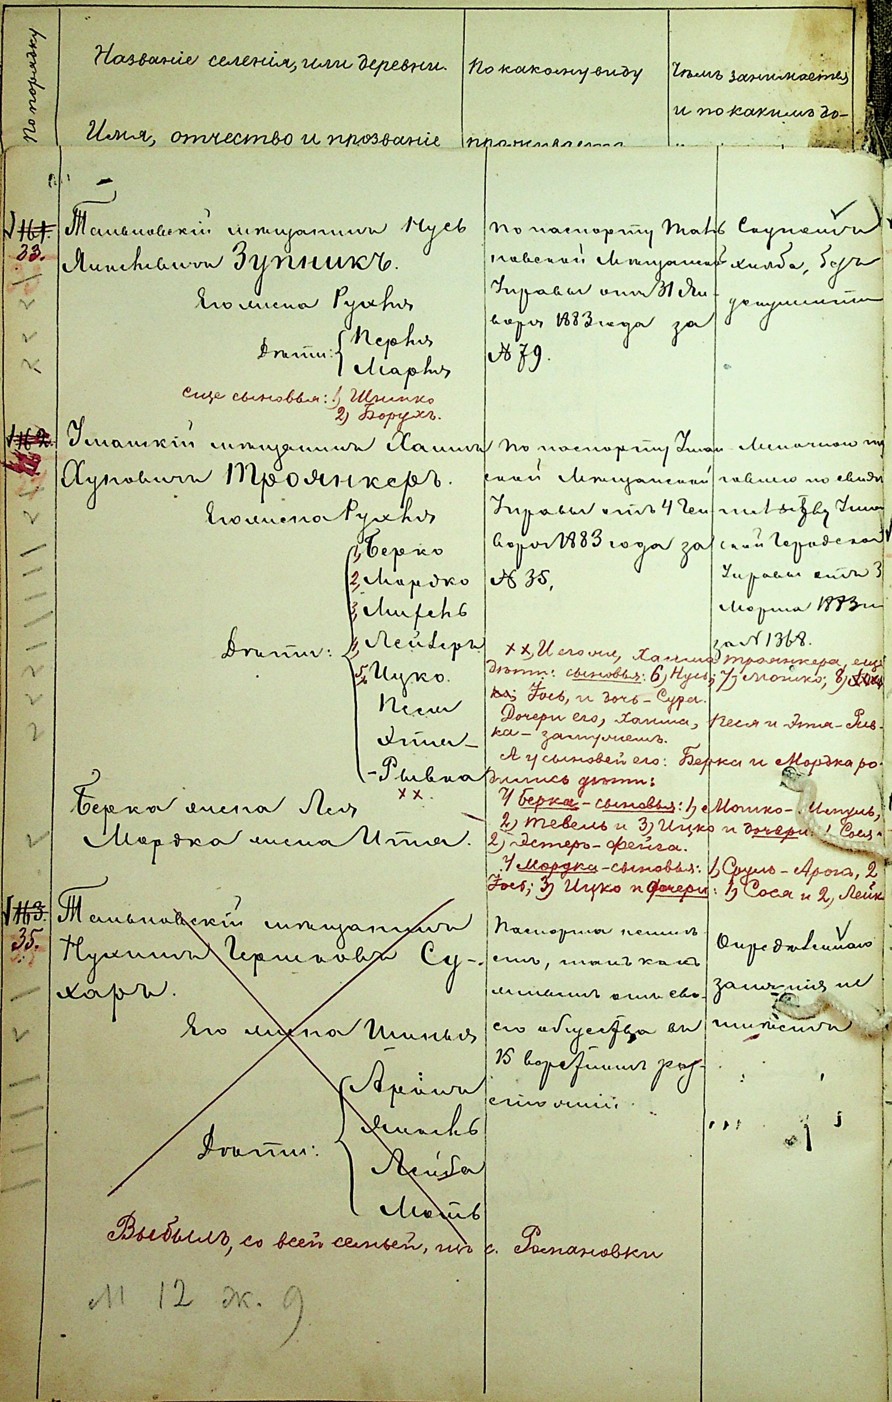 По порядку
Названіе селенія, или деревни.
Имя, отчество и прозваніе
По какому виду
проживаетъ
Чѣмъ занимается
и по какимъ до-
№1.
33.
Тальновскій мѣщанинъ Нусь
Янкелевичъ Зупникъ.
Его жена Рухля
Дѣти: Перля
Марля
еще сыновья: 1) Шлемко
2) Борухъ.
По паспорту Таль
новской Мѣщанской
Управы отъ 31 Ян-
варя 1883 года за
№ 79.
Скупкой
хлѣба, безъ
документа
№2.
Уманскій мѣщанинъ Хаимъ
Хуновичъ Троянкеръ.
Его жена Рухля
Дѣти:
1, Берко
2, Мордко
3, Мифель
4, Лейзеръ
5, Ицко.
Песя
Этля -
- Рывка
××.
Берка жена Лея
Мордка жена Итта.
По паспорту Уман-
ской Мѣщанской
Управы отъ 4 Ген
варя 1883 года за
№ 35,
Мелочною тор
говлею по свидѣ
тельству Уман
ской Городской
Управы отъ 3
Марта 1883 г.
за № 1368.
××) И его же, Хаима Троянкера, еще
дѣти: сыновья: 6) Нусь; 7) Мошко; 8)
Іось, и дочь - Сура.
Дочери его, Хаима, Песя и Этля - Рыв-
ка - замужемъ.
А у сыновей его: Берка и Мордка ро-
дились дѣти:
У Берка - сыновья: 1) Мошко -
2) Тевель и 3) Ицко и дочери: 1 Сося -
2) Эстеръ - Фейга.
У Мордка - сыновья: 1) Сруль - Арона, 2
Іось; 3) Ицко и дочери: 1) Сося и 2, Лейка
№3.
35.
Тальновскій мѣщанинъ
Нухимъ Гершковъ Су-
харъ.
Его жена Шинья
Дѣти: Аронъ
Янкель
Лейба
Моть
Паспорта неимѣ-
етъ, такъ какъ
живетъ отъ сво-
его общества въ
15 верстномъ раз-
стояніи.
Опредѣленнаго
занятія не
имѣетъ
Выбылъ, со всей семьей, изъ с. Романовки
М 12 ж. 9